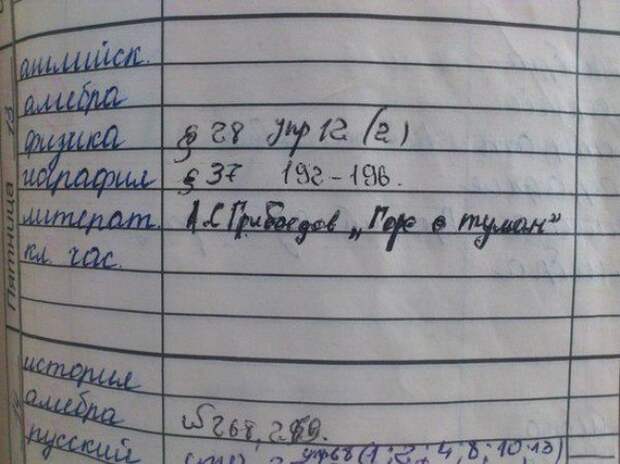 Пятница
английск.
алгебра
физика § 28 упр 12 (2)
география § 37 192-196.
литерат. А.С Грибоедов „Горе о туман"
кл. час.
история
алгебра № 268, 269.
русский упр68 (1; 2; 4; 8; 10; 13)